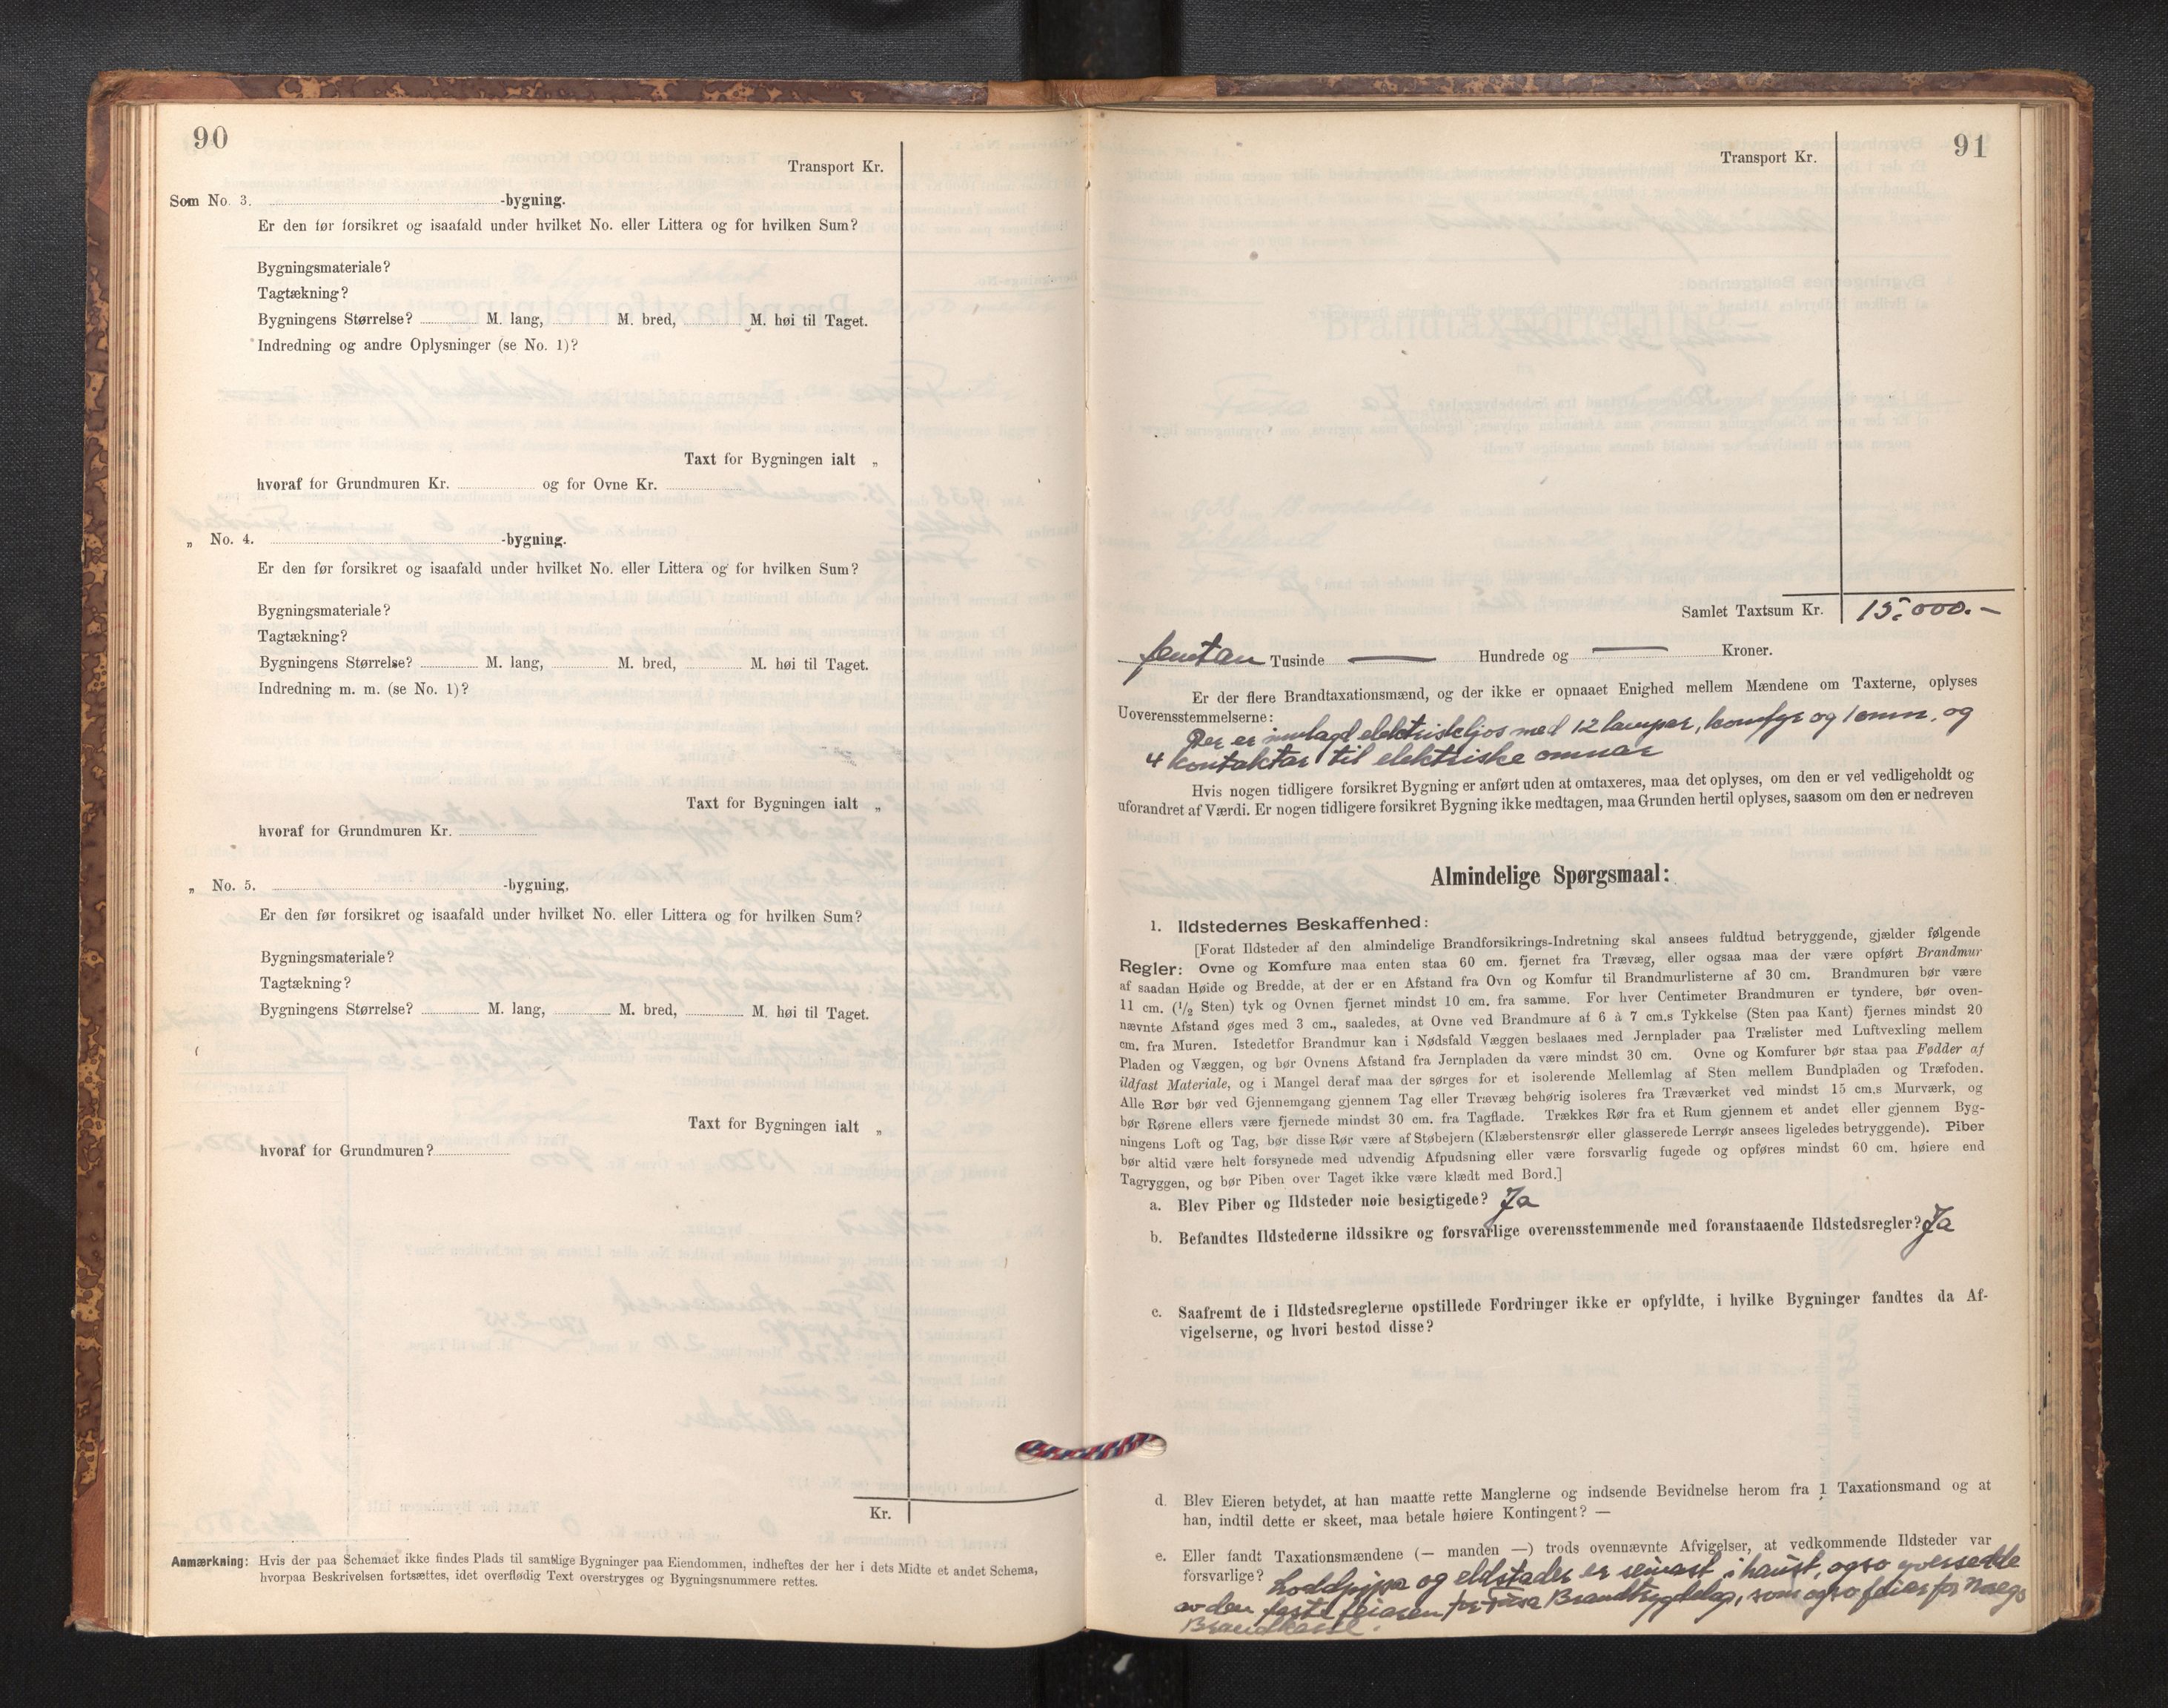 90
Transport Kr.
Som No. 3. -bygning.
Er den før forsikret og isaafald under hvilket No. eller Littera og for hvilken Sum?
Bygningsmateriale?
Tagtækning?
Bygningens Størrelse? M. lang, M. bred, M. høi til Taget.
Indredning og andre Oplysninger (se No. 1)?
Taxt for Bygningen ialt „
hvoraf for Grundmuren Kr. og for Ovne Kr.
„ No. 4. -bygning.
Er den før forsikret og isaafald under hvilket No. eller Littera og for hvilken Sum?
Bygningsmateriale?
Tagtækning?
Bygningens Størrelse? M. lang, M. bred, M. høi til Taget.
Indredning m. m. (se No. 1)?
Taxt for Bygningen ialt „
hvoraf for Grundmuren Kr.
„ No. 5. -bygning.
Er den før forsikret og isaafald under hvilket No. eller Littera og for hvilken Sum?
Bygningsmateriale?
Tagtækning?
Bygningens Størrelse? M. lang, M. bred, M. høi til Taget.
Taxt for Bygningen ialt „
hvoraf for Grundmuren?
Kr.
Anmærkning: Hvis der paa Schemaet ikke findes Plads til samtlige Bygninger paa Eiendommen, indheftes der her i dets Midte et andet Schema,
hvorpaa Beskrivelsen fortsættes, idet overflødig Text overstryges og Bygningsnummere rettes.
91
Transport Kr.
Samlet Taxtsum Kr. 15.000.-
femtan Tusinde — Hundrede og — Kroner.
Er der flere Brandtaxationsmænd, og der ikke er opnaaet Enighed mellem Mændene om Taxterne, oplyses
Uoverensstemmelserne:
Der er innlagd elektriskljos med 12 lampar, komfyr og 1 omn, og
4 kontaktar til elektriske omnar
Hvis nogen tidligere forsikret Bygning er anført uden at omtaxeres, maa det oplyses, om den er vel vedligeholdt og
uforandret af Værdi. Er nogen tidligere forsikret Bygning ikke medtagen, maa Grunden hertil oplyses, saasom om den er nedreven
Almindelige Spørgsmaal:
1. Ildstedernes Beskaffenhed:
[Forat Ildsteder af den almindelige Brandforsikrings-Indretning skal ansees fuldtud betryggende, gjælder følgende
Regler: Ovne og Komfure maa enten staa 60 cm. fjernet fra Trævæg, eller ogsaa maa der være opført Brandmur
af saadan Høide og Bredde, at der er en Afstand fra Ovn og Komfur til Brandmurlisterne af 30 cm. Brandmuren bør være
11 cm. (1/2 Sten) tyk og Ovnen fjernet mindst 10 cm. fra samme. For hver Centimeter Brandmuren er tyndere, bør oven-
nævnte Afstand øges med 3 cm., saaledes, at Ovne ved Brandmure af 6 à 7 cm.s Tykkelse (Sten paa Kant) fjernes mindst 20
cm. fra Muren. Istedetfor Brandmur kan i Nødsfald Væggen beslaaes med Jernplader paa Trælister med Luftvexling mellem
Pladen og Væggen, og bør Ovnens Afstand fra Jernpladen da være mindst 30 cm. Ovne og Komfurer bør staa paa Fødder af
ildfast Materiale, og i Mangel deraf maa der sørges for et isolerende Mellemlag af Sten mellem Bundpladen og Træfoden.
Alle Rør bør ved Gjennemgang gjennem Tag eller Trævæg behørig isoleres fra Træværket ved mindst 15 cm.s Murværk, og
bør Rørene ellers være fjernede mindst 30 cm. fra Tagflade. Trækkes Rør fra et Rum gjennem et andet eller gjennem Byg-
ningens Loft og Tag, bør disse Rør være af Støbejern (Klæberstensrør eller glasserede Lerrør ansees ligeledes betryggende). Piber
bør altid være helt forsynede med udvendig Afpudsning eller være forsvarlig fugede og opføres mindst 60 cm. høiere end
Tagryggen, og bør Piben over Taget ikke være klædt med Bord.]
a. Blev Piber og Ildsteder nøie besigtigede? Ja
b. Befandtes Ildstederne ildssikre og forsvarlige overensstemmende med foranstaaende Ildstedsregler? Ja
c. Saafremt de i Ildstedsreglerne opstillede Fordringer ikke er opfyldte, i hvilke Bygninger fandtes da Af-
vigelserne, og hvori bestod disse?
d. Blev Eieren betydet, at han maatte rette Manglerne og indsende Bevidnelse herom fra 1 Taxationsmand og at
han, indtil dette er skeet, maa betale høiere Kontingent? —
e. Eller fandt Taxationsmændene (— manden —) trods ovennævnte Afvigelser, at vedkommende Ildsteder var
forsvarlige? Loddpipa og eldstader er seinast i haust, ogso yversedde
av den faste feiaren for Fusa Brandtrygdelag, som ogso feiar for Noregs
Brandkasse.